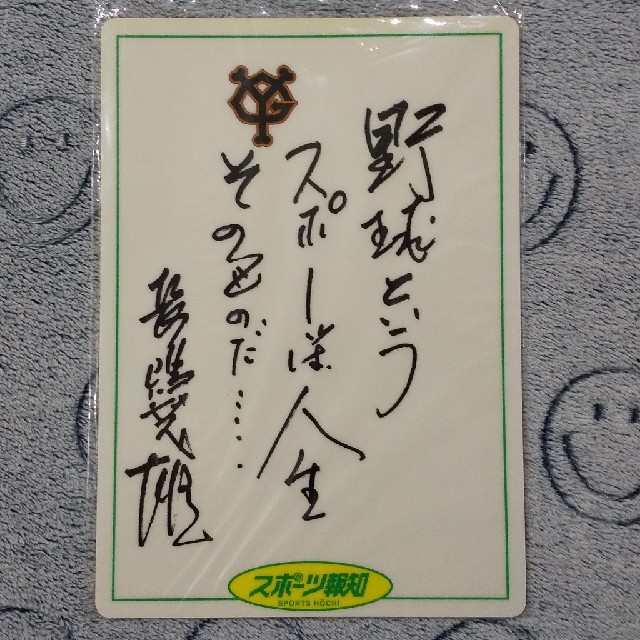 野球という
スポーツは人生
そのものだ……
長嶋茂雄
YG
スポーツ報知
SPORTS HOCHI